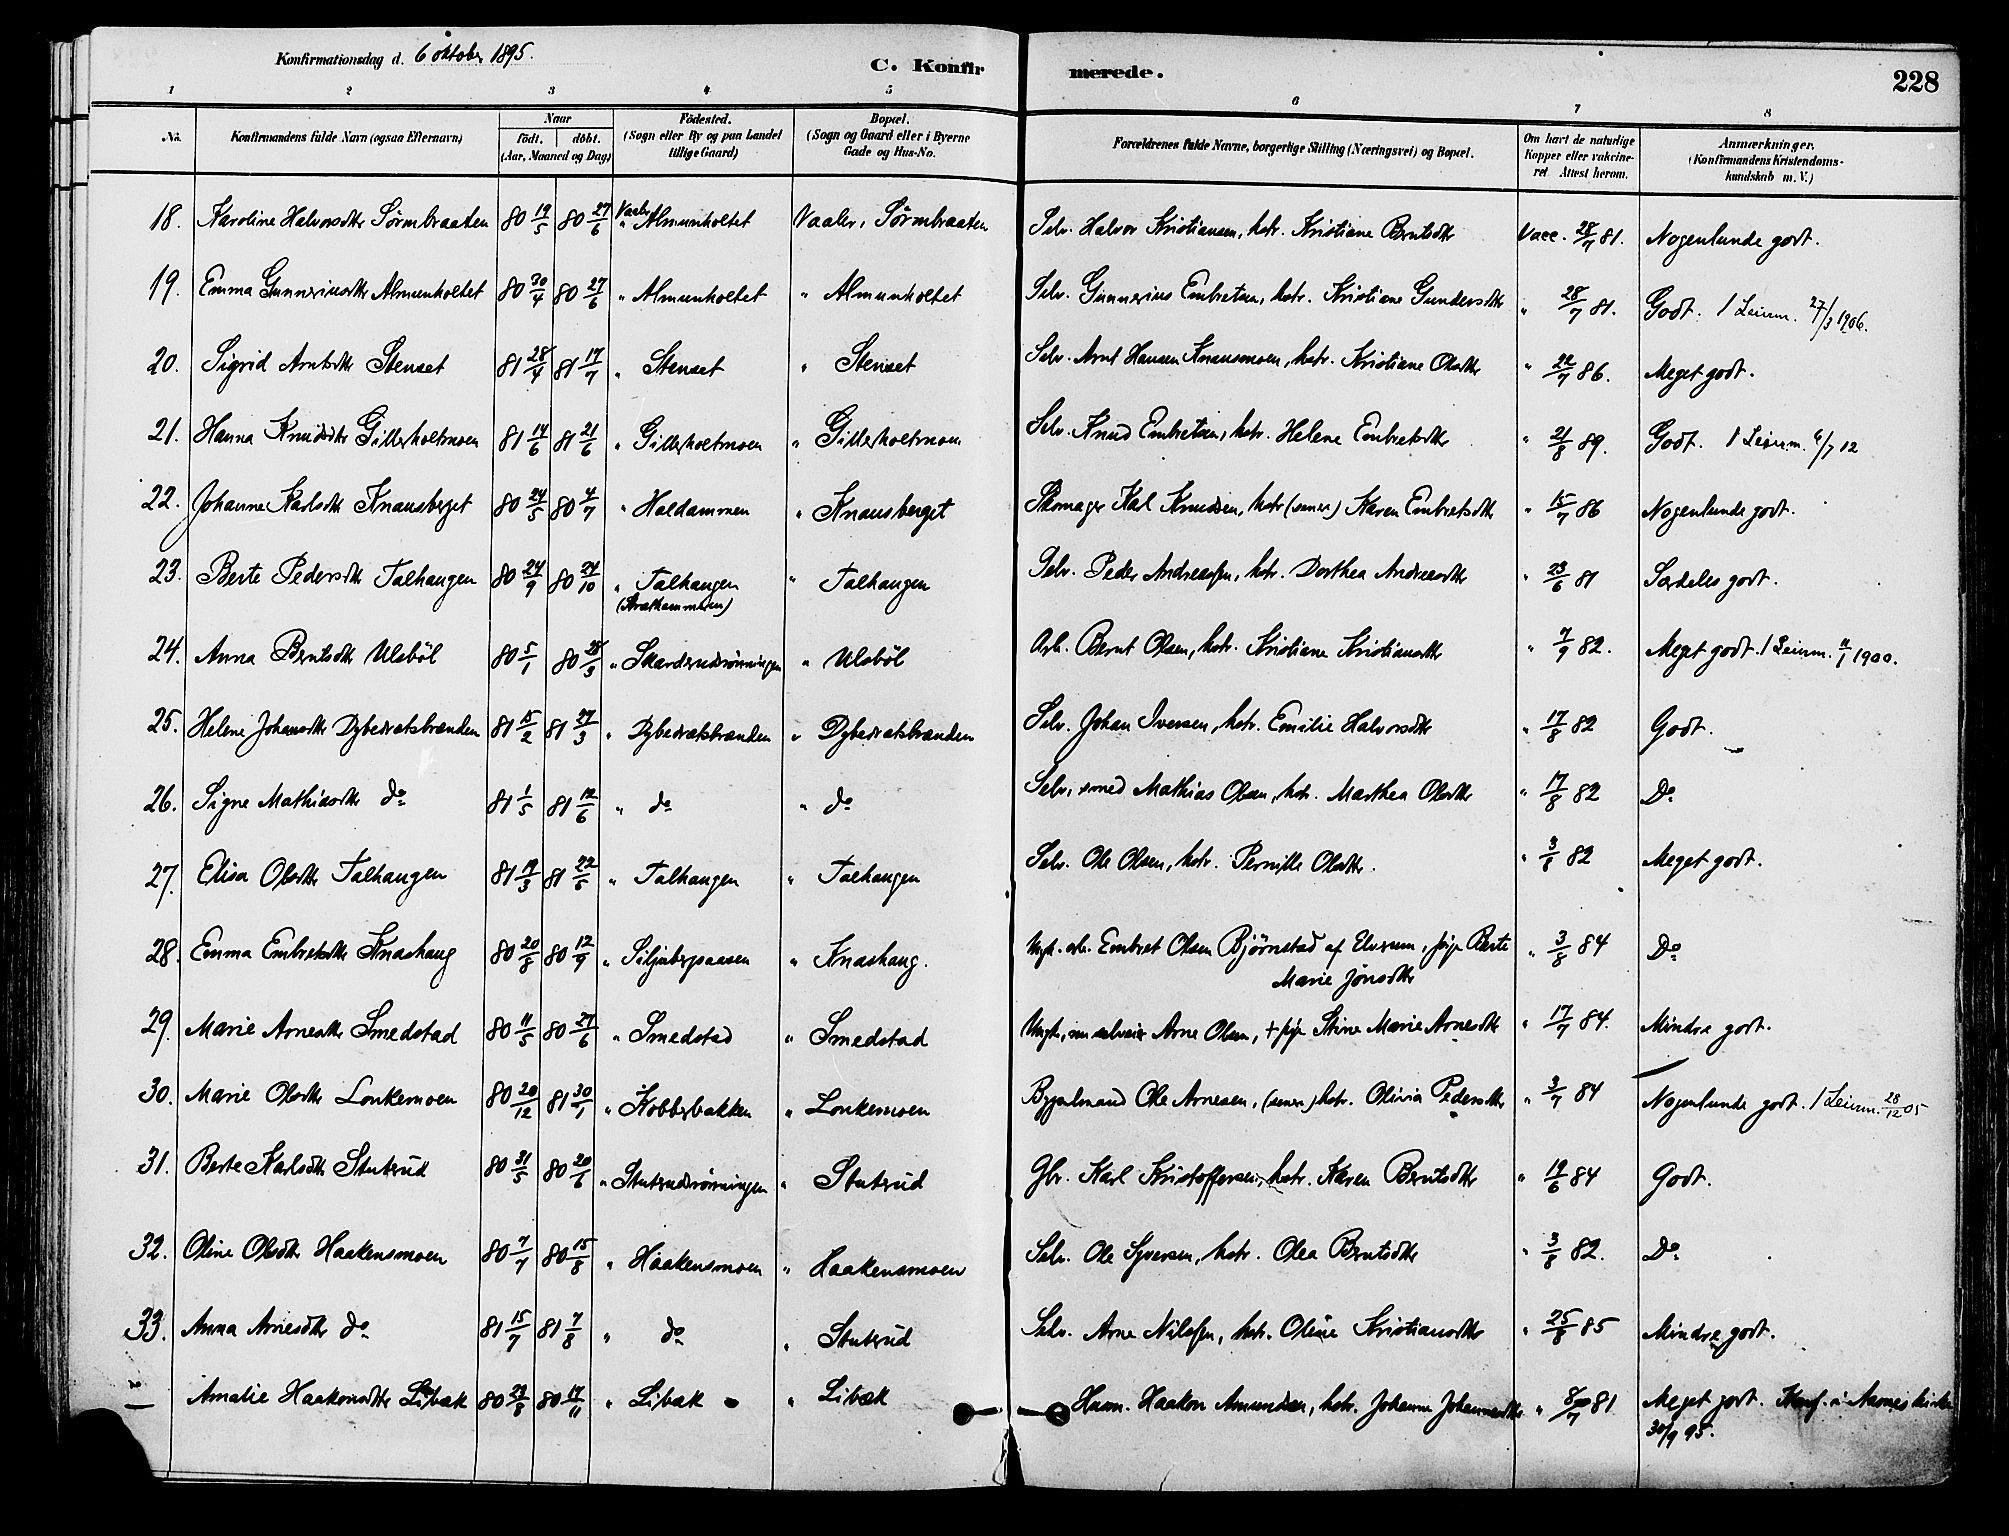 Konfirmationsdag d. 6 oktober 1895.
C. Konfir merede.
228
1 2 3 4 5 6 7 8
No. Konfirmandens fulde Navn (ogsaa Efternavn) Naar födt. döbt. (Aar, Maaned og Dag) Födested. (Sogn eller By og paa Landet tillige Gaard) Bopæl. (Sogn og Gaard eller i Byerne Gade og Hus-No. Forældrenes fulde Navne, borgerlige Stilling (Næringsvei) og Bopæl. Om havt de naturlige Kopper eller vakcineret Attest herom. Anmærkninger. (Konfirmandens Kristendomskundskab m. V.)
18. Karoline Halvorsdtr Sörmbraaten 80 19/5 80 27/6 Vaaler " Almunholtet Vaaler, Sörmbraaten Selv. Halvor Kristiansen, hstr. Kristiane Berntsdtr Vacc. 28/7 81. Nogenlunde godt.
19. Emma Gunneriusdtr Almunholtet 80 30/4 80 27/6 " Almunholtet " Almunholtet Selv. Gunnerius Embretsen, hstr. Kristiane Gundersdtr " 28/7 81. Godt. 1 Leierm. 27/3 1906.
20. Sigrid Arntsdtr Stenset 81 28/4 81 17/7 " Stenset " Stenset Selv. Arnt Hansen Knausmoen, hstr. Kristiane Olsdtr " 22/7 86. Meget godt.
21. Hanna Knudsdtr Gillerholtmoen 81 14/6 81 21/6 " Gillerholtmoen " Gillerholtmoen Selv. Knud Embretsen, hstr. Helene Embretsdtr " 21/8 89. Godt. 1 Leierm. 6/7 12
22. Johanne Karlsdtr Knausberget 80 24/5 80 4/7 " Holdammen " Knausberget Skomager Karl Knudsen, hstr (senere) Karen Embretsdtr " 15/7 86 Nogenlunde godt.
23. Berte Pedersdtr Talhaugen 80 24/9 80 24/10 " Talhaugen " Talhaugen Selv. Peder Andreassen, hstr. Dorthea Andreasdtr " 23/6 81 Særdeles godt.
24. Anna Berntsdtr Ulsböl 80 5/1 80 /3 " Skarderudsrönningen " Ulsböl Arb. Bernt Olsen, hstr. Kristiane Kristiansdtr " 7/9 82. Meget godt. 1 Leierm. 11/1 1900.
25. Helene Johansdtr Dybedratsbrænden 81 15/2 81 27/3 " Dybedratsbrænden " Dybedratsbrænden Selv. Johan Iversen, hstr. Emilie Halvorsdtr " 17/8 82 Godt.
26. Signe Mathiasdtr do 81 1/5 81 12/6 " do " do Selv, smed Mathias Olsen, hstr. Marthea Olsdtr " 17/8 82 Do
27. Elisa Olsdtr Talhaugen 81 19/3 81 22/5 " Talhaugen " Talhaugen Selv. Ole Olsen, hstr. Pernille Olsdtr. " 3/8 82 Meget godt.
28. Emma Embretsdtr Knashaug 80 20/8 80 12/9 " Siljubergsaasen " Knashaug. Ungk. arb. Embret Olsen Bjørnstad af Elverum, pige Berte
Marie Jönsdtr " 3/8 84 Do
29. Marie Arnesdtr Smedstad 80 11/5 80 27/6 " Smedstad " Smedstad Ungk., nu selveier Arne Olsen, + pige Stine Marie Arnesdtr " 17/7 84. Mindre godt.
30. Marie Olsdtr Lonkemoen 80 20/12 81 30/1 " Kobberbakken " Lonkemoen Bygselmand Ole Arnesen, (senere) hstr. Olivia Pedersdtr " 3/7 84 Nogenlunde godt. 1 Leierm. 28/12 05
31. Berte Karlsdtr Stutrud 80 31/5 80 20/6 " Stutrudsrönningen " Stutrud Gbr. Karl Kristoffersen, hstr. Karen Berntsdtr " 19/6 84 Godt.
32. Oline Olsdtr Haakensmoen 80 7/7 80 15/8 " Haakensmoen " Haakensmoen Selv. Ole Syversen, hstr. Olea Berntsdtr " 3/8 82. Do
33. Anna Arnesdtr do 81 15/7 81 7/8 " do " Stutrud Selv. Arne Nilssen, hstr. Oline Kristiansdtr " 25/8 85 Mindre godt.
— Amalie Haakonsdtr Libæk 80 29/8 80 14/11 " Libæk " Libæk Husm. Haakon Amundsen, hstr. Johanne Johannesdtr " 8/7 81. Meget godt. Konf. i Aasnes kirke
30/9 95.